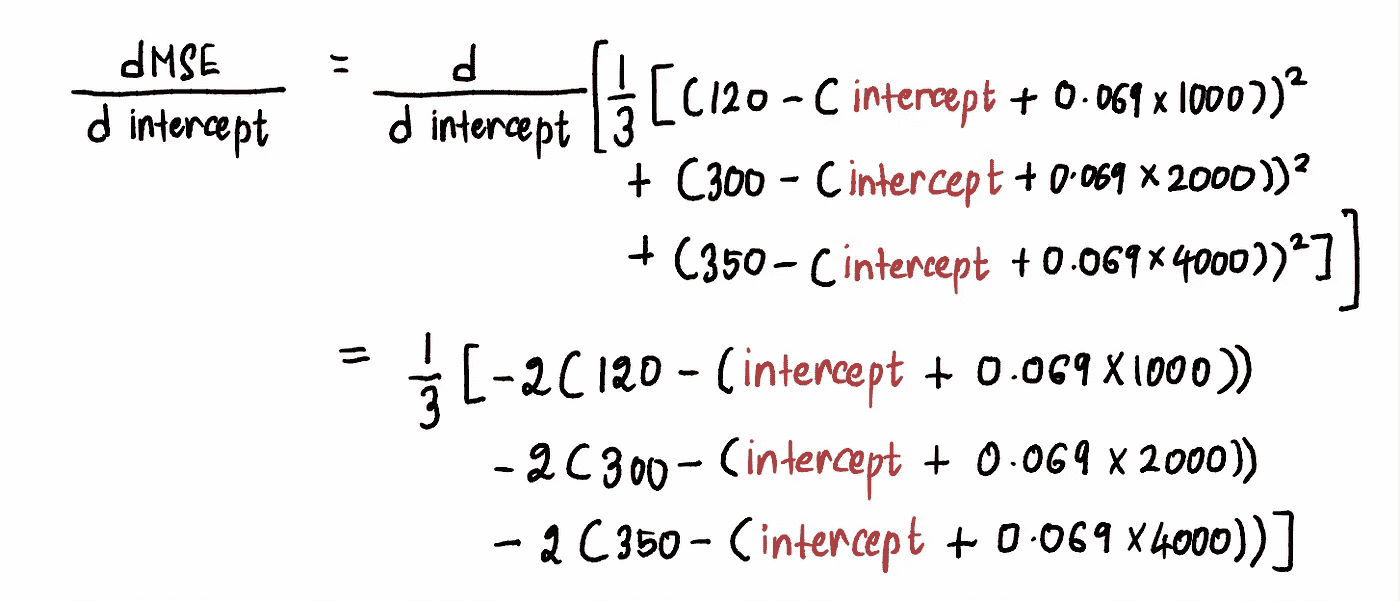 dMSE / d intercept = d / d intercept [ 1/3 [ (120 - ( intercept + 0.069 x 1000))²
+ (300 - ( intercept + 0.069 x 2000))²
+ (350 - ( intercept + 0.069 x 4000))² ] ]
= 1/3 [ -2 ( 120 - ( intercept + 0.069 x 1000))
- 2 ( 300 - ( intercept + 0.069 x 2000))
- 2 ( 350 - ( intercept + 0.069 x 4000)) ]